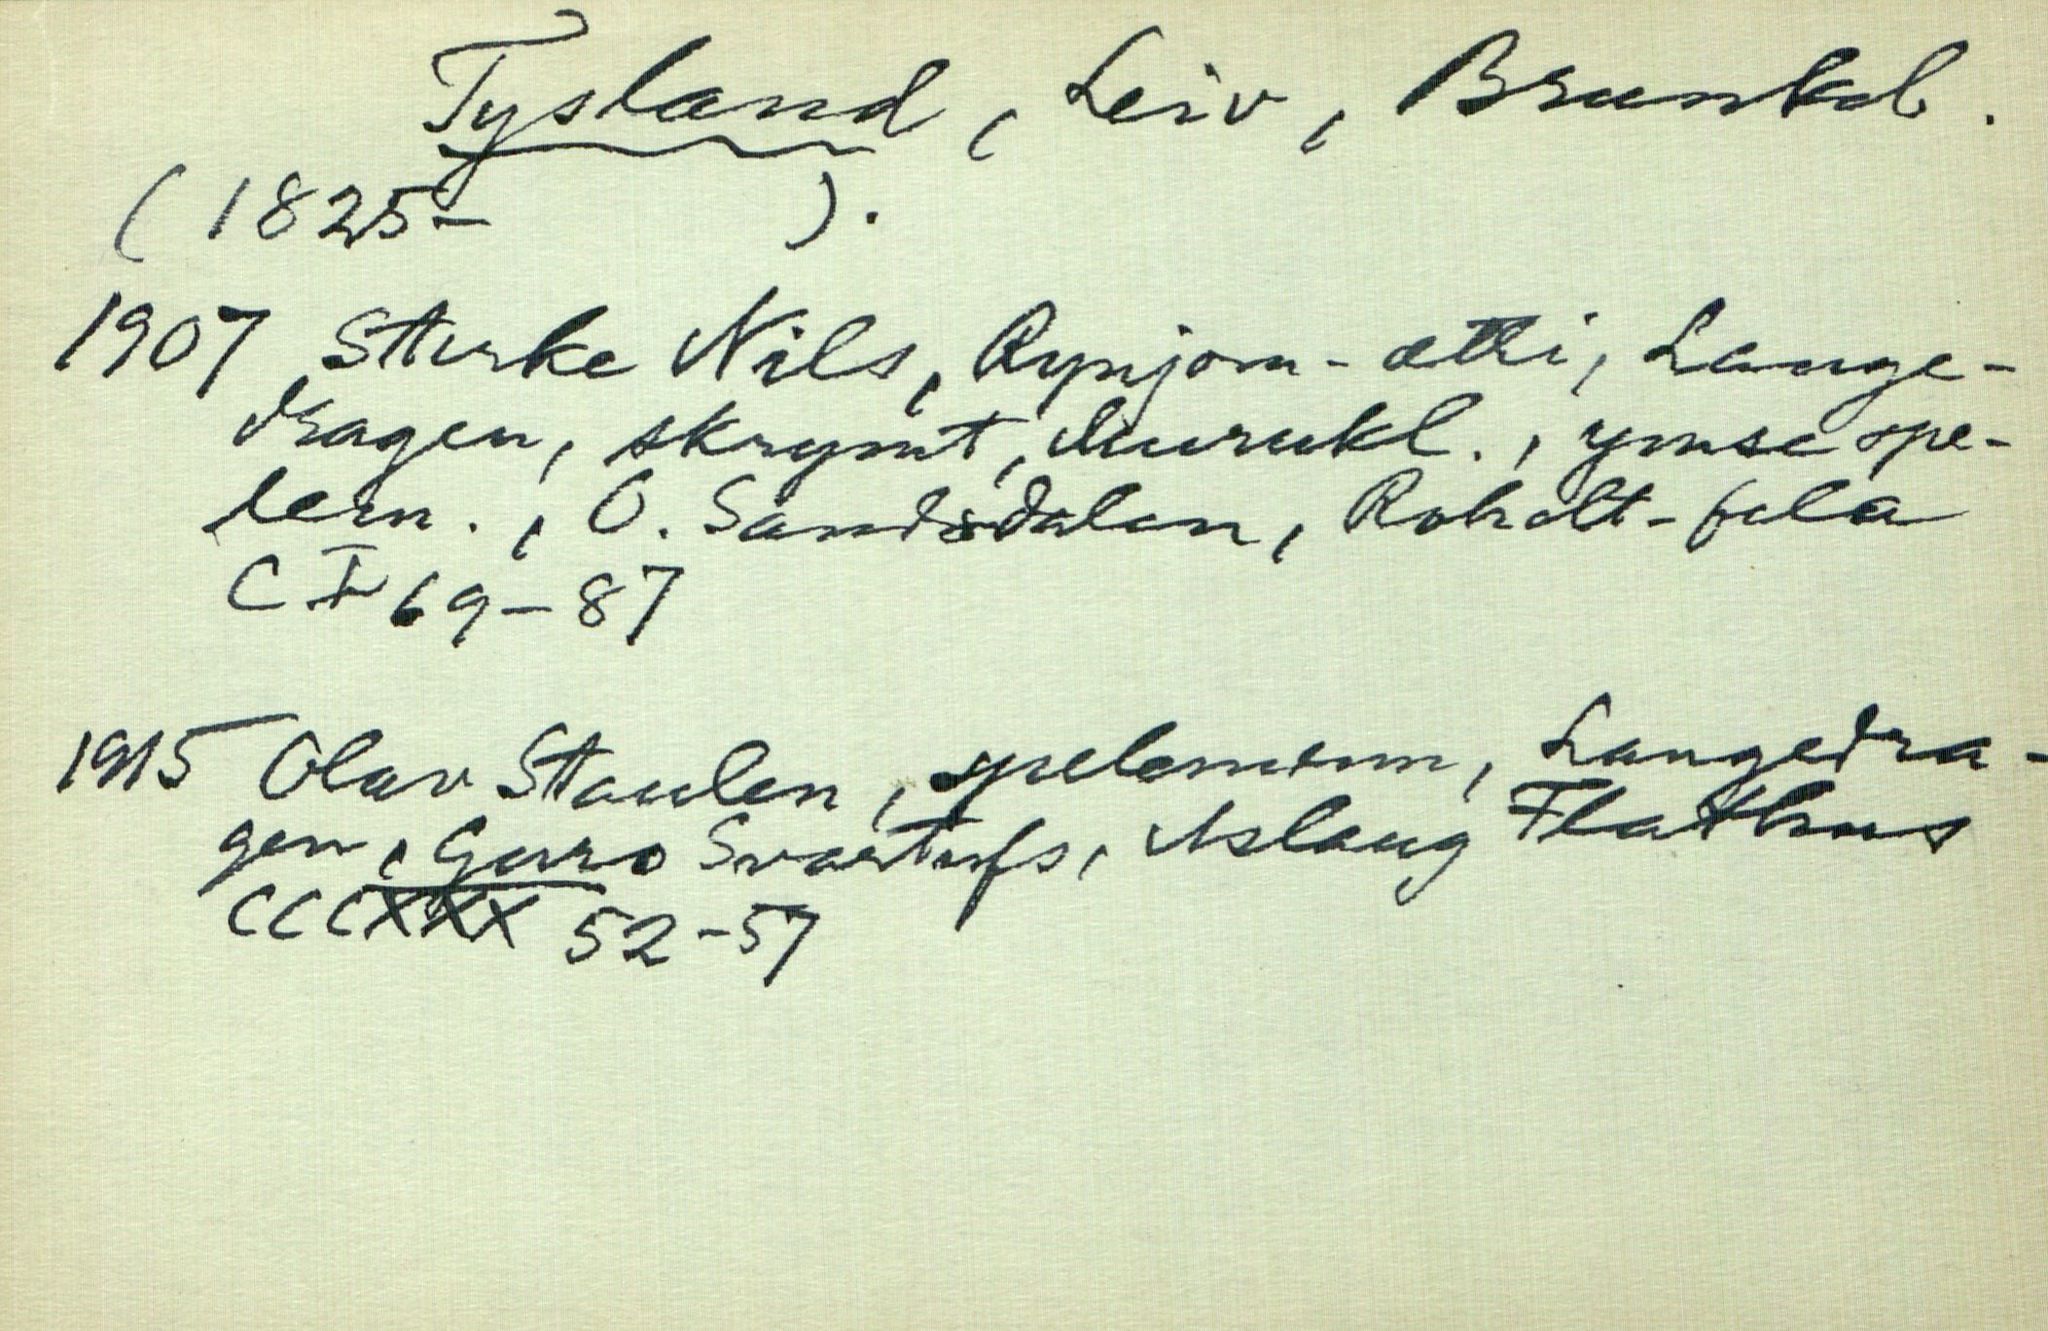 Tysland, Leiv, Brunkeb.
(1825- ).
1907 Sterke Nils, Rynjom-ætti, Lange-
dragen, skrymt, murukl., ymse spe-
lem., O. Sandsdalen, Roholt-fela
CI 69-87
1915 Olav Staulen, spelemenn, Langedra-
gen, Guro Svartufs, Aslaug Flathus
CCCXXX 52-57